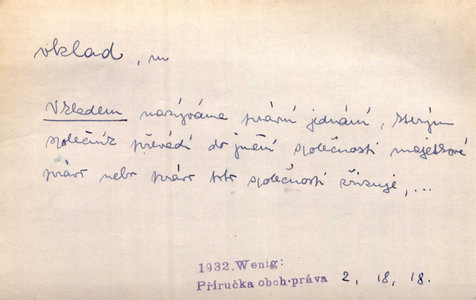 vklad, m
Vkladem nazýváme právní jednání, kterým
společník převádí do jmění společnosti majetkové
právo nebo právo toto společnosti zřizuje,...
1932.Wenig:
Příručka obch.práva 2, 18, 18.